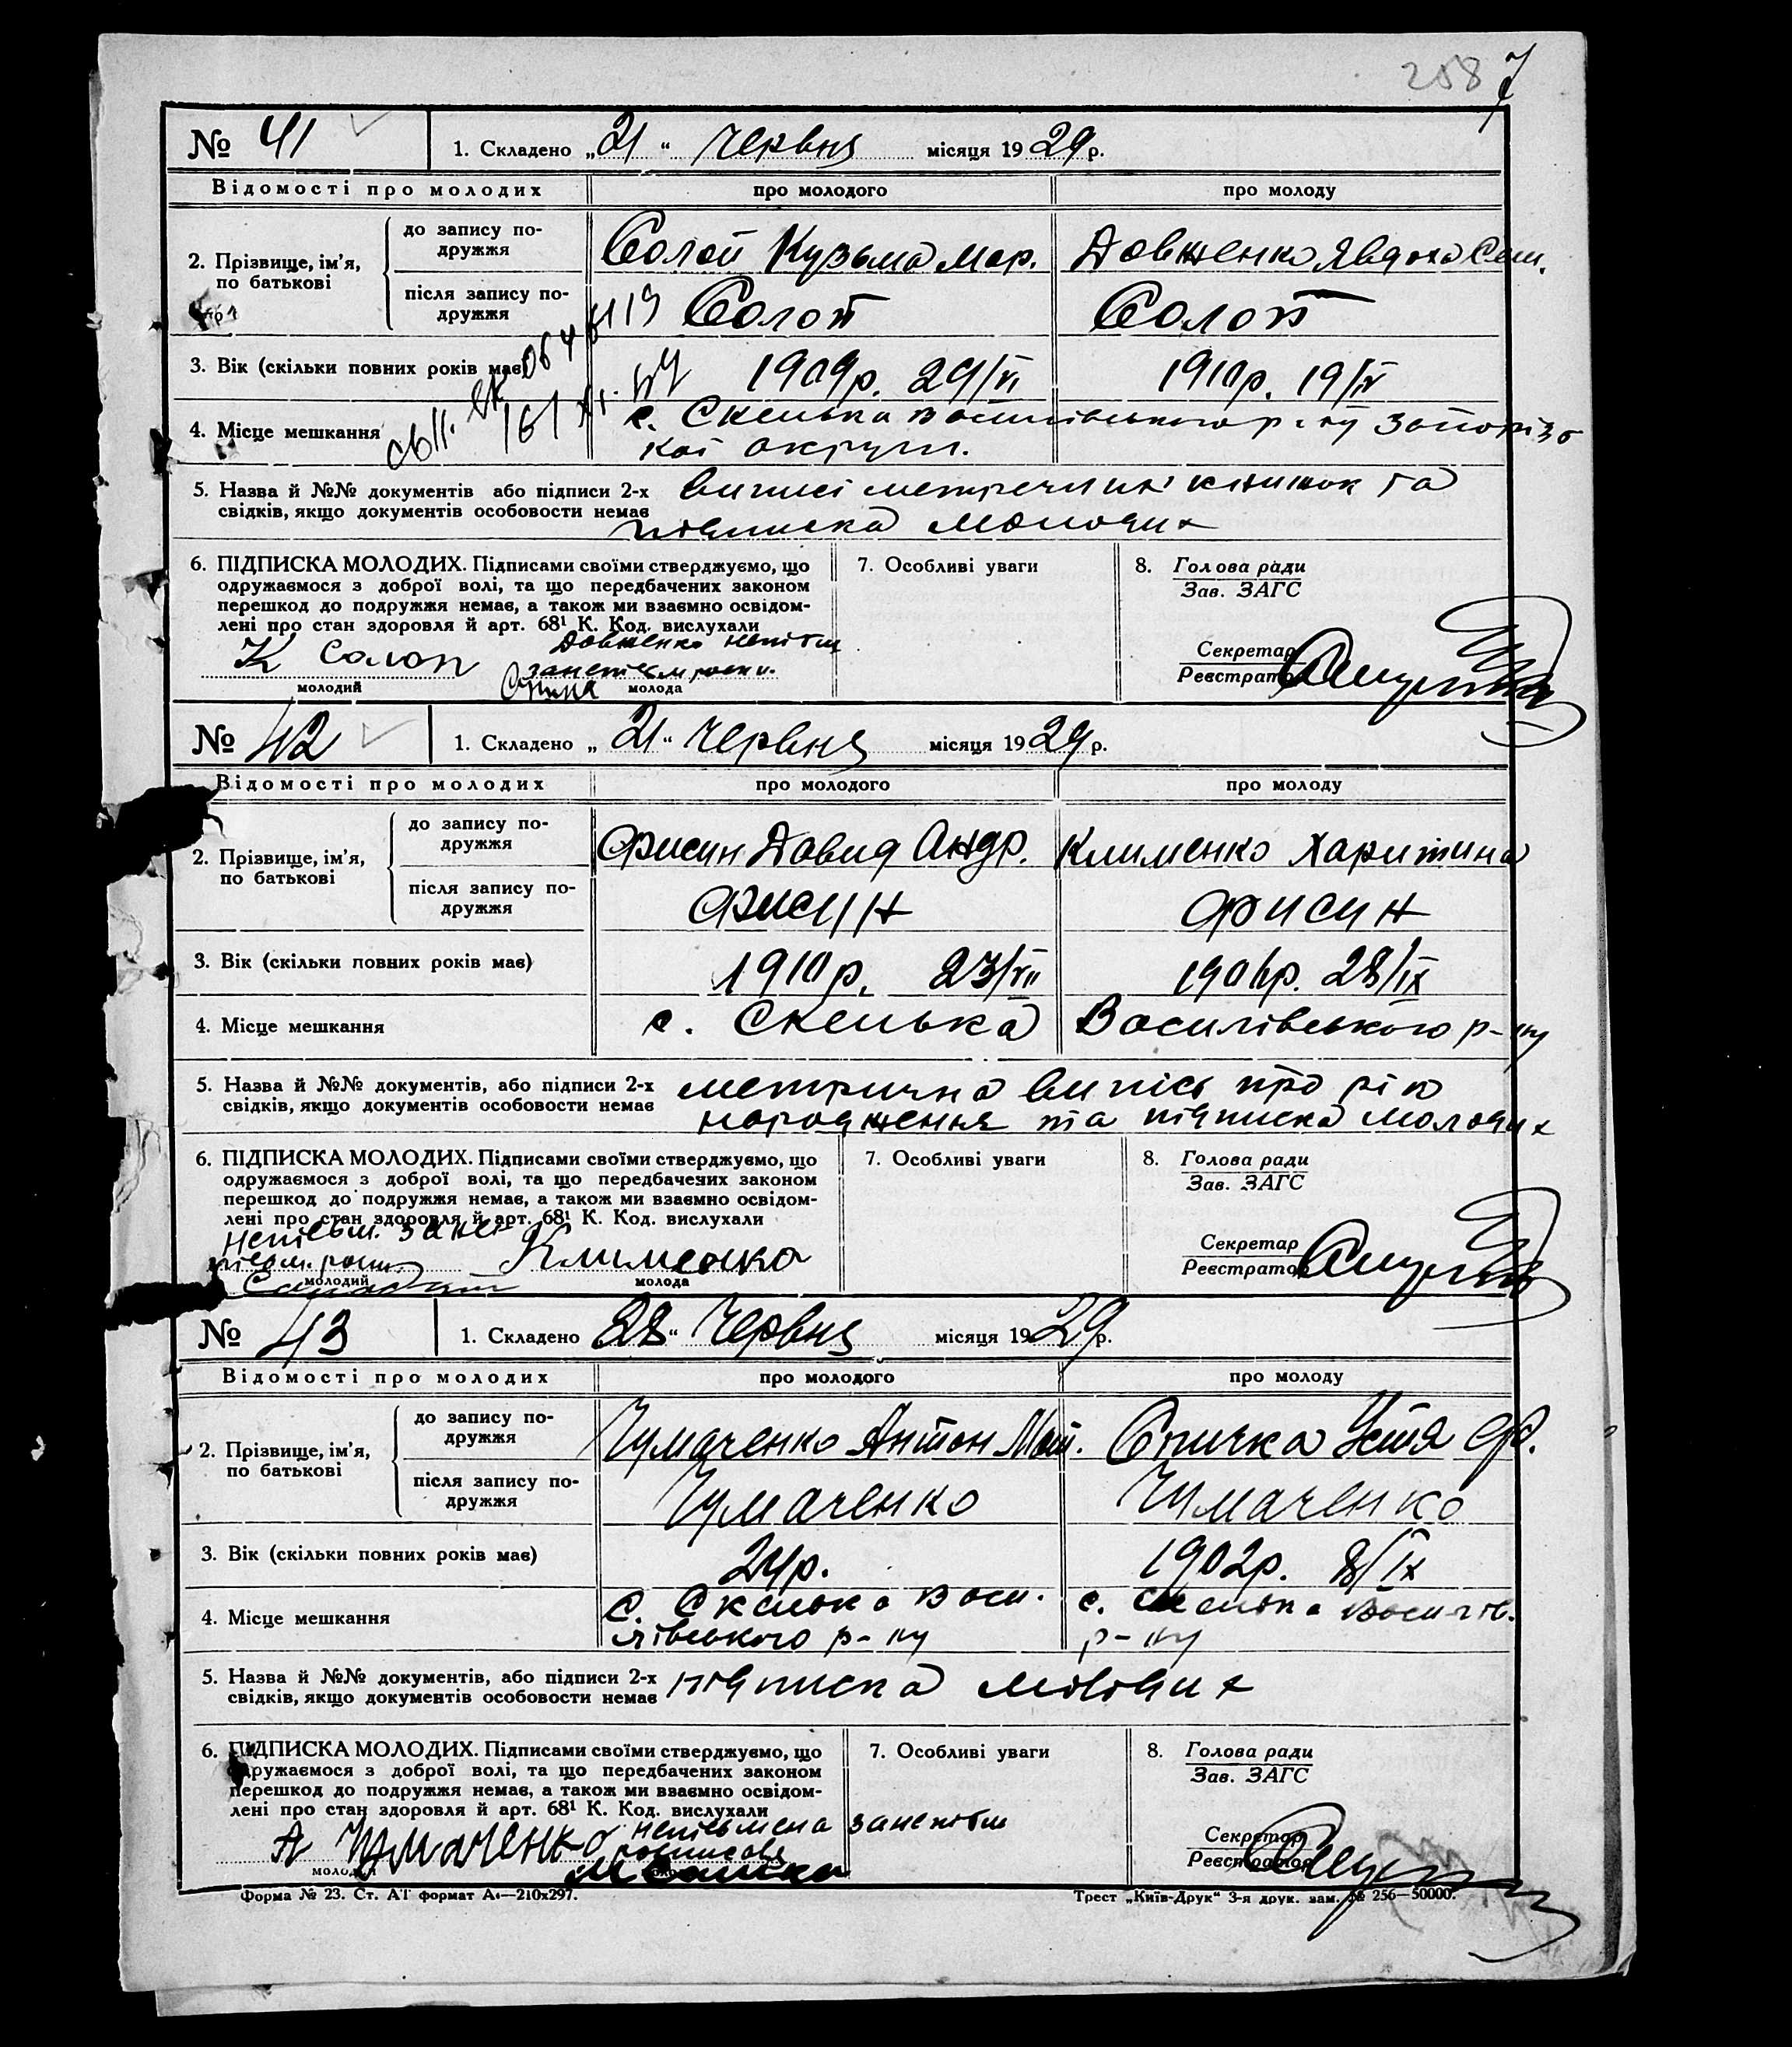 258 7
№ 41 1. Складено „21“ червня місяця 1929 р.
Відомості про молодих про молодого про молоду
2. Прізвище, ім'я, по батькові
до запису подружжя Солоп Кузьма Мар. Довженко Явдоха Сем.
після запису подружжя Солоп Солоп
3. Вік (скільки повних років має) 1909р. 29/VI 1910р. 19/IV
4. Місце мешкання с. Скелька Василівського р-ну Запорізь
кої округи.
5. Назва й №№ документів або підписи 2-х виписі метричних книжок та
свідків, якщо документів особовости немає підписка молодих
6. ПІДПИСКА МОЛОДИХ. Підписами своїми стверджуємо, що 7. Особливі уваги 8. Голова ради
одружаємося з доброї волі, та що передбачених законом Зав. ЗАГС
перешкод до подружжя немає, а також ми взаємно освідом-
лені про стан здоровля й арт. 68¹ К. Код. вислухали
Довженко
К Солоп Секретар
молодий молода Реєстратор
№ 42 1. Складено „21“ червня місяця 1929 р.
Відомості про молодих про молодого про молоду
2. Прізвище, ім'я, по батькові
до запису подружжя Фисун Давид Андр. Клименко Харитина
після запису подружжя Фисун Фисун
3. Вік (скільки повних років має) 1910р. 23/VII 28/IX
4. Місце мешкання с. Скелька Василівського р-ну
5. Назва й №№ документів, або підписи 2-х метрична випись про рік
свідків, якщо документів особовости немає народження та підписка молодих
6. ПІДПИСКА МОЛОДИХ. Підписами своїми стверджуємо, що 7. Особливі уваги 8. Голова ради
одружаємося з доброї волі, та що передбачених законом Зав. ЗАГС
перешкод до подружжя немає, а також ми взаємно освідом-
лені про стан здоровля й арт. 68¹ К. Код. вислухали
Клименко Секретар
молодий молода Реєстратор
№ 43 1. Складено 28“ червня місяця 1929 р.
Відомості про молодих про молодого про молоду
2. Прізвище, ім'я, по батькові
до запису подружжя Чумаченко Антон Мат. Спичка Устя Ф.
після запису подружжя Чумаченко Чумаченко
3. Вік (скільки повних років має) 24р. 1902р. 8/IX
4. Місце мешкання с. Скелька Васи- с. Скелька Василів.
лівського р-ну р-ну
5. Назва й №№ документів, або підписи 2-х підписка молодих
свідків, якщо документів особовости немає
6. ПІДПИСКА МОЛОДИХ. Підписами своїми стверджуємо, що 7. Особливі уваги 8. Голова ради
одружаємося з доброї волі, та що передбачених законом Зав. ЗАГС
перешкод до подружжя немає, а також ми взаємно освідом-
лені про стан здоровля й арт. 68¹ К. Код. вислухали
неписьмена
А Чумаченко Секретар
молодий Реєстратор
Форма № 23. Ст. АІ формат А₄—210х297. Трест „Київ-Друк“ 3-я друк. зам. № 256—50000.